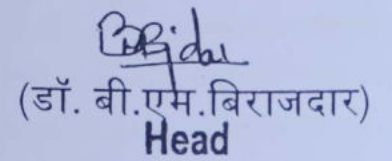 (डॉ. बी.एम.बिराजदार)
Head